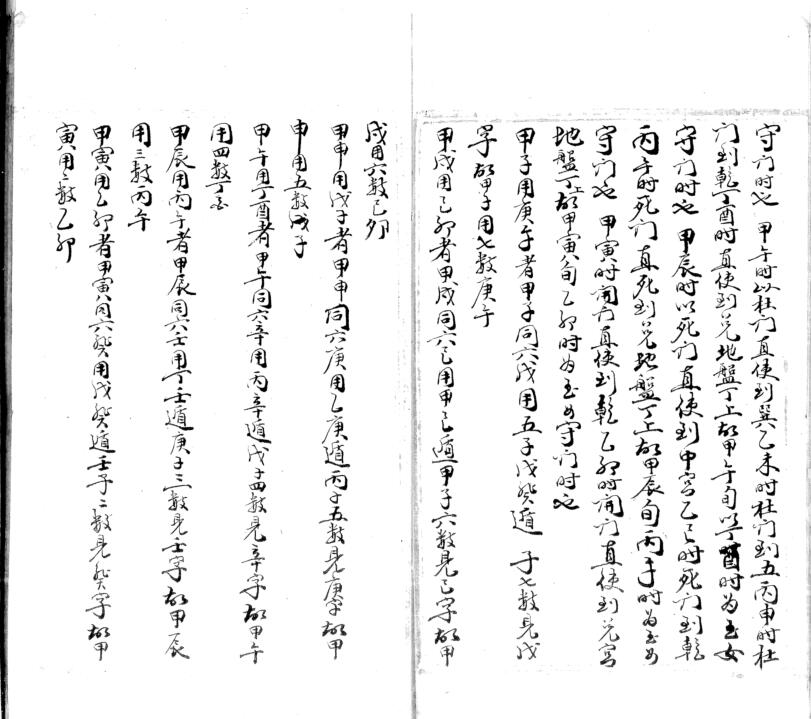 守门时也　甲午时以杜门直使到巽乙未时杜门到五丙申时杜
门到乾丁酉时直使到兑地盤丁上故甲午旬以丁酉时为玉女
守门时也　甲辰时以死门直使到中宫乙巳时死门到乾
丙午时死门直死到兑地盤丁上故甲辰旬丙午时为玉女
守门也　甲寅时開门直使到乾乙卯时開门直使到兑宫
地盤丁上故甲寅旬乙卯时为玉女守门时也
甲子用庚午者甲子同六戊用五子戊癸遁　子七数見戊
字故甲子用七数庚午
甲戌用己卯者甲戌同六己用甲己遁甲子六数見己字故甲
戌用六数己卯
甲申用戊子者甲申同六庚用乙庚遁丙子五数見庚字故甲
申用五数戊子
甲午用丁酉者甲午同六辛用丙辛遁戊子四数見辛字故甲午
用四数丁酉
甲辰用丙午者甲辰同六壬用丁壬遁庚子三数見壬字故甲辰
用三数丙午
甲寅用乙卯者甲寅同六癸用戊癸遁壬子二数見癸字故甲
寅用二数乙卯